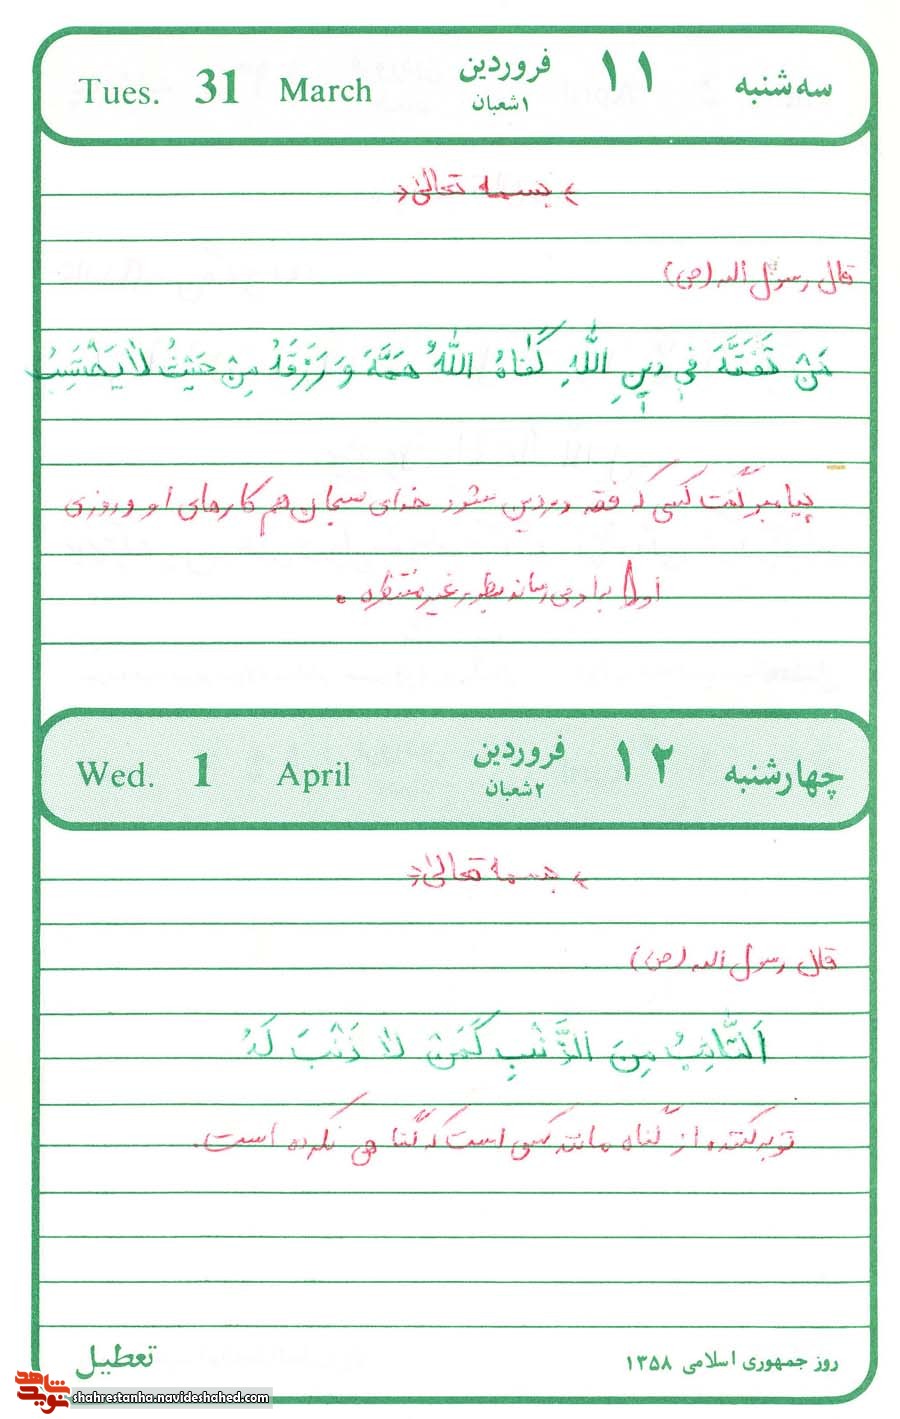 Tues. 31 March فروردین ۱۱ سه‌شنبه
۱ شعبان
بسمه تعالی
قال رسول الله (ص)
مَنْ تَفَقَّهَ فی دینِ اللّهِ کَفاهُ اللّهُ هَمَّهَ وَ رَزَقَهُ مِنْ حَیْثُ لا یَحْتَسِبُ
پیامبر گفت کسی که فقه در دین شود خدای سبحان هم کارهای او و روزی
او را برا و می رساند بطور غیر منتظره .
Wed. 1 April فروردین ۱۲ چهارشنبه
۲ شعبان
بسمه تعالی
قال رسول الله (ص)
اَلتّائِبُ مِنَ الذَّنْبِ کَمَنْ لا ذَنْبَ لَهُ
توبه کننده از گناه مانند کسی است که گناهی نکرده است.
روز جمهوری اسلامی ۱۳۵۸ تعطیل
نوید شاهد
shahrestanha.navideshahed.com